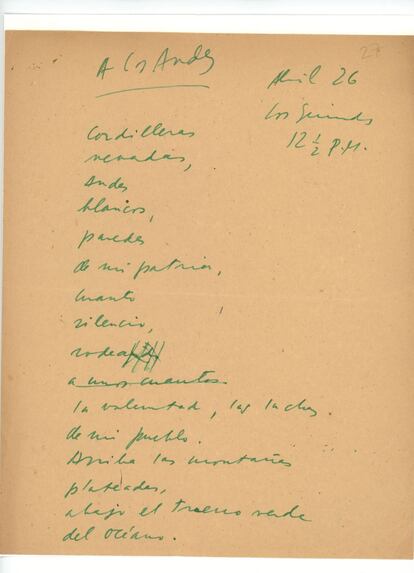 27
A los Andes
Abril 26
Los Guindos
12 ½ P.M.
Cordilleras
nevadas,
Andes
blancos,
paredes
de mi patria,
cuanto
silencio,
rodea
a
la voluntad, las luchas
de mi pueblo.
Arriba las montañas
plateadas,
abajo el trueno verde
del océano.